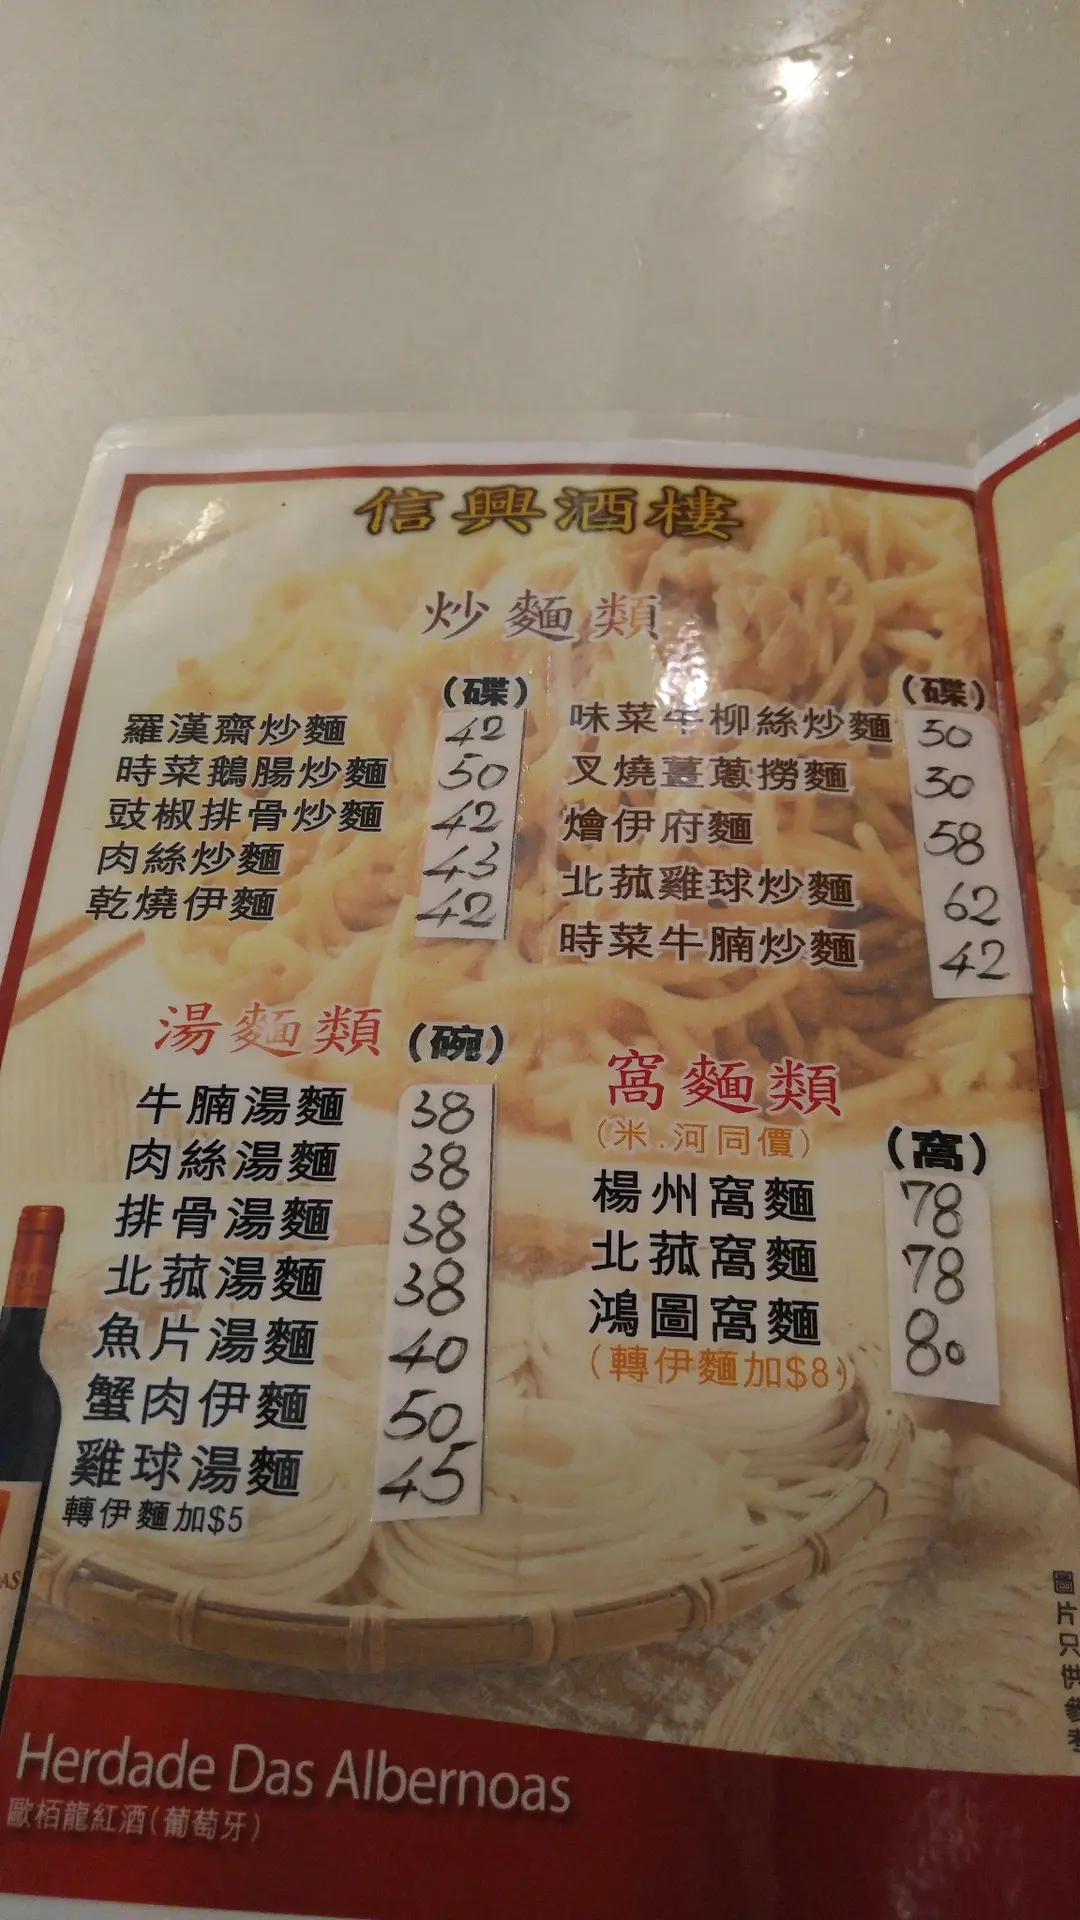 信興酒樓
炒麵類
(碟)
羅漢齋炒麵 42
時菜鵝腸炒麵 50
豉椒排骨炒麵 42
肉絲炒麵 43
乾燒伊麵 42
(碟)
味菜牛柳絲炒麵 50
叉燒薑蔥撈麵 50
燴伊府麵 58
北菰雞球炒麵 62
時菜牛腩炒麵 42
湯麵類 (碗)
牛腩湯麵 38
肉絲湯麵 38
排骨湯麵 38
北菰湯麵 38
魚片湯麵 40
蟹肉伊麵 50
雞球湯麵 45
轉伊麵加$5
窩麵類
(米.河同價)
(窩)
楊州窩麵 78
北菰窩麵 78
鴻圖窩麵 80
(轉伊麵加$8)
圖片只供參考
Herdade Das Albernoas
歐栢龍紅酒(葡萄牙)